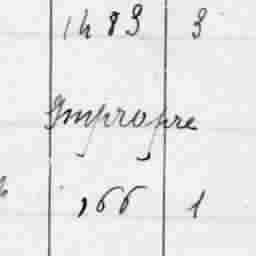 1483 3
Impropre
166 1